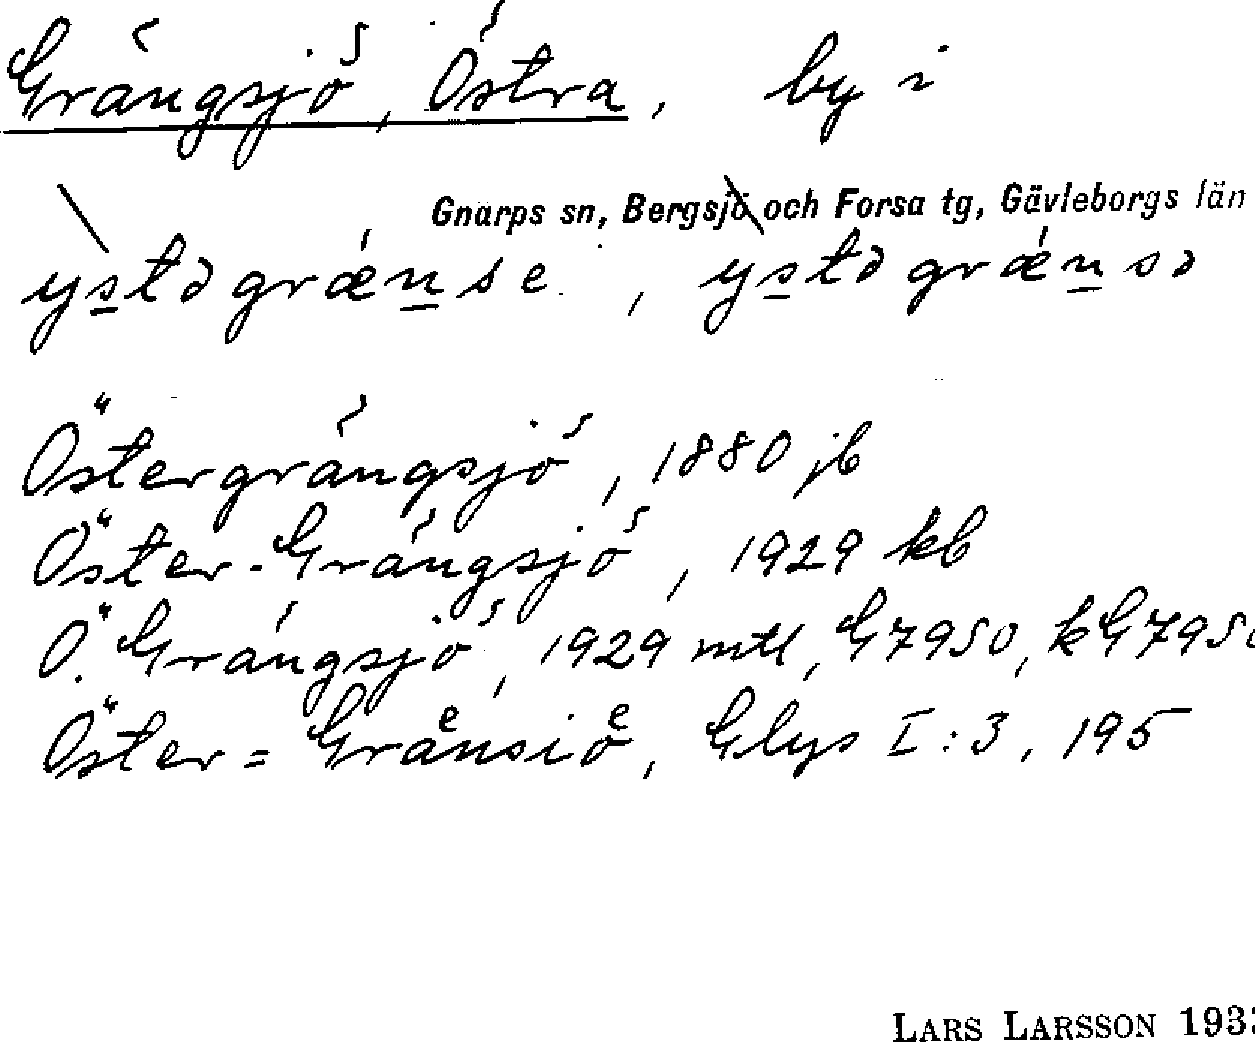 Grängsjö, Östra, by i
Gnarps sn, Bergsjö och Forsa tg, Gävleborgs län
ystə grǽnse, ystə grǽnsə
Östergrängsjö, 1880 jb
Öster-Grängsjö, 1929 kb
Ö. Grängsjö, 1929 mtl, G7950, kG795
Öster=Graͤnsioͤ, Glys I:3, 195
LARS LARSSON 193